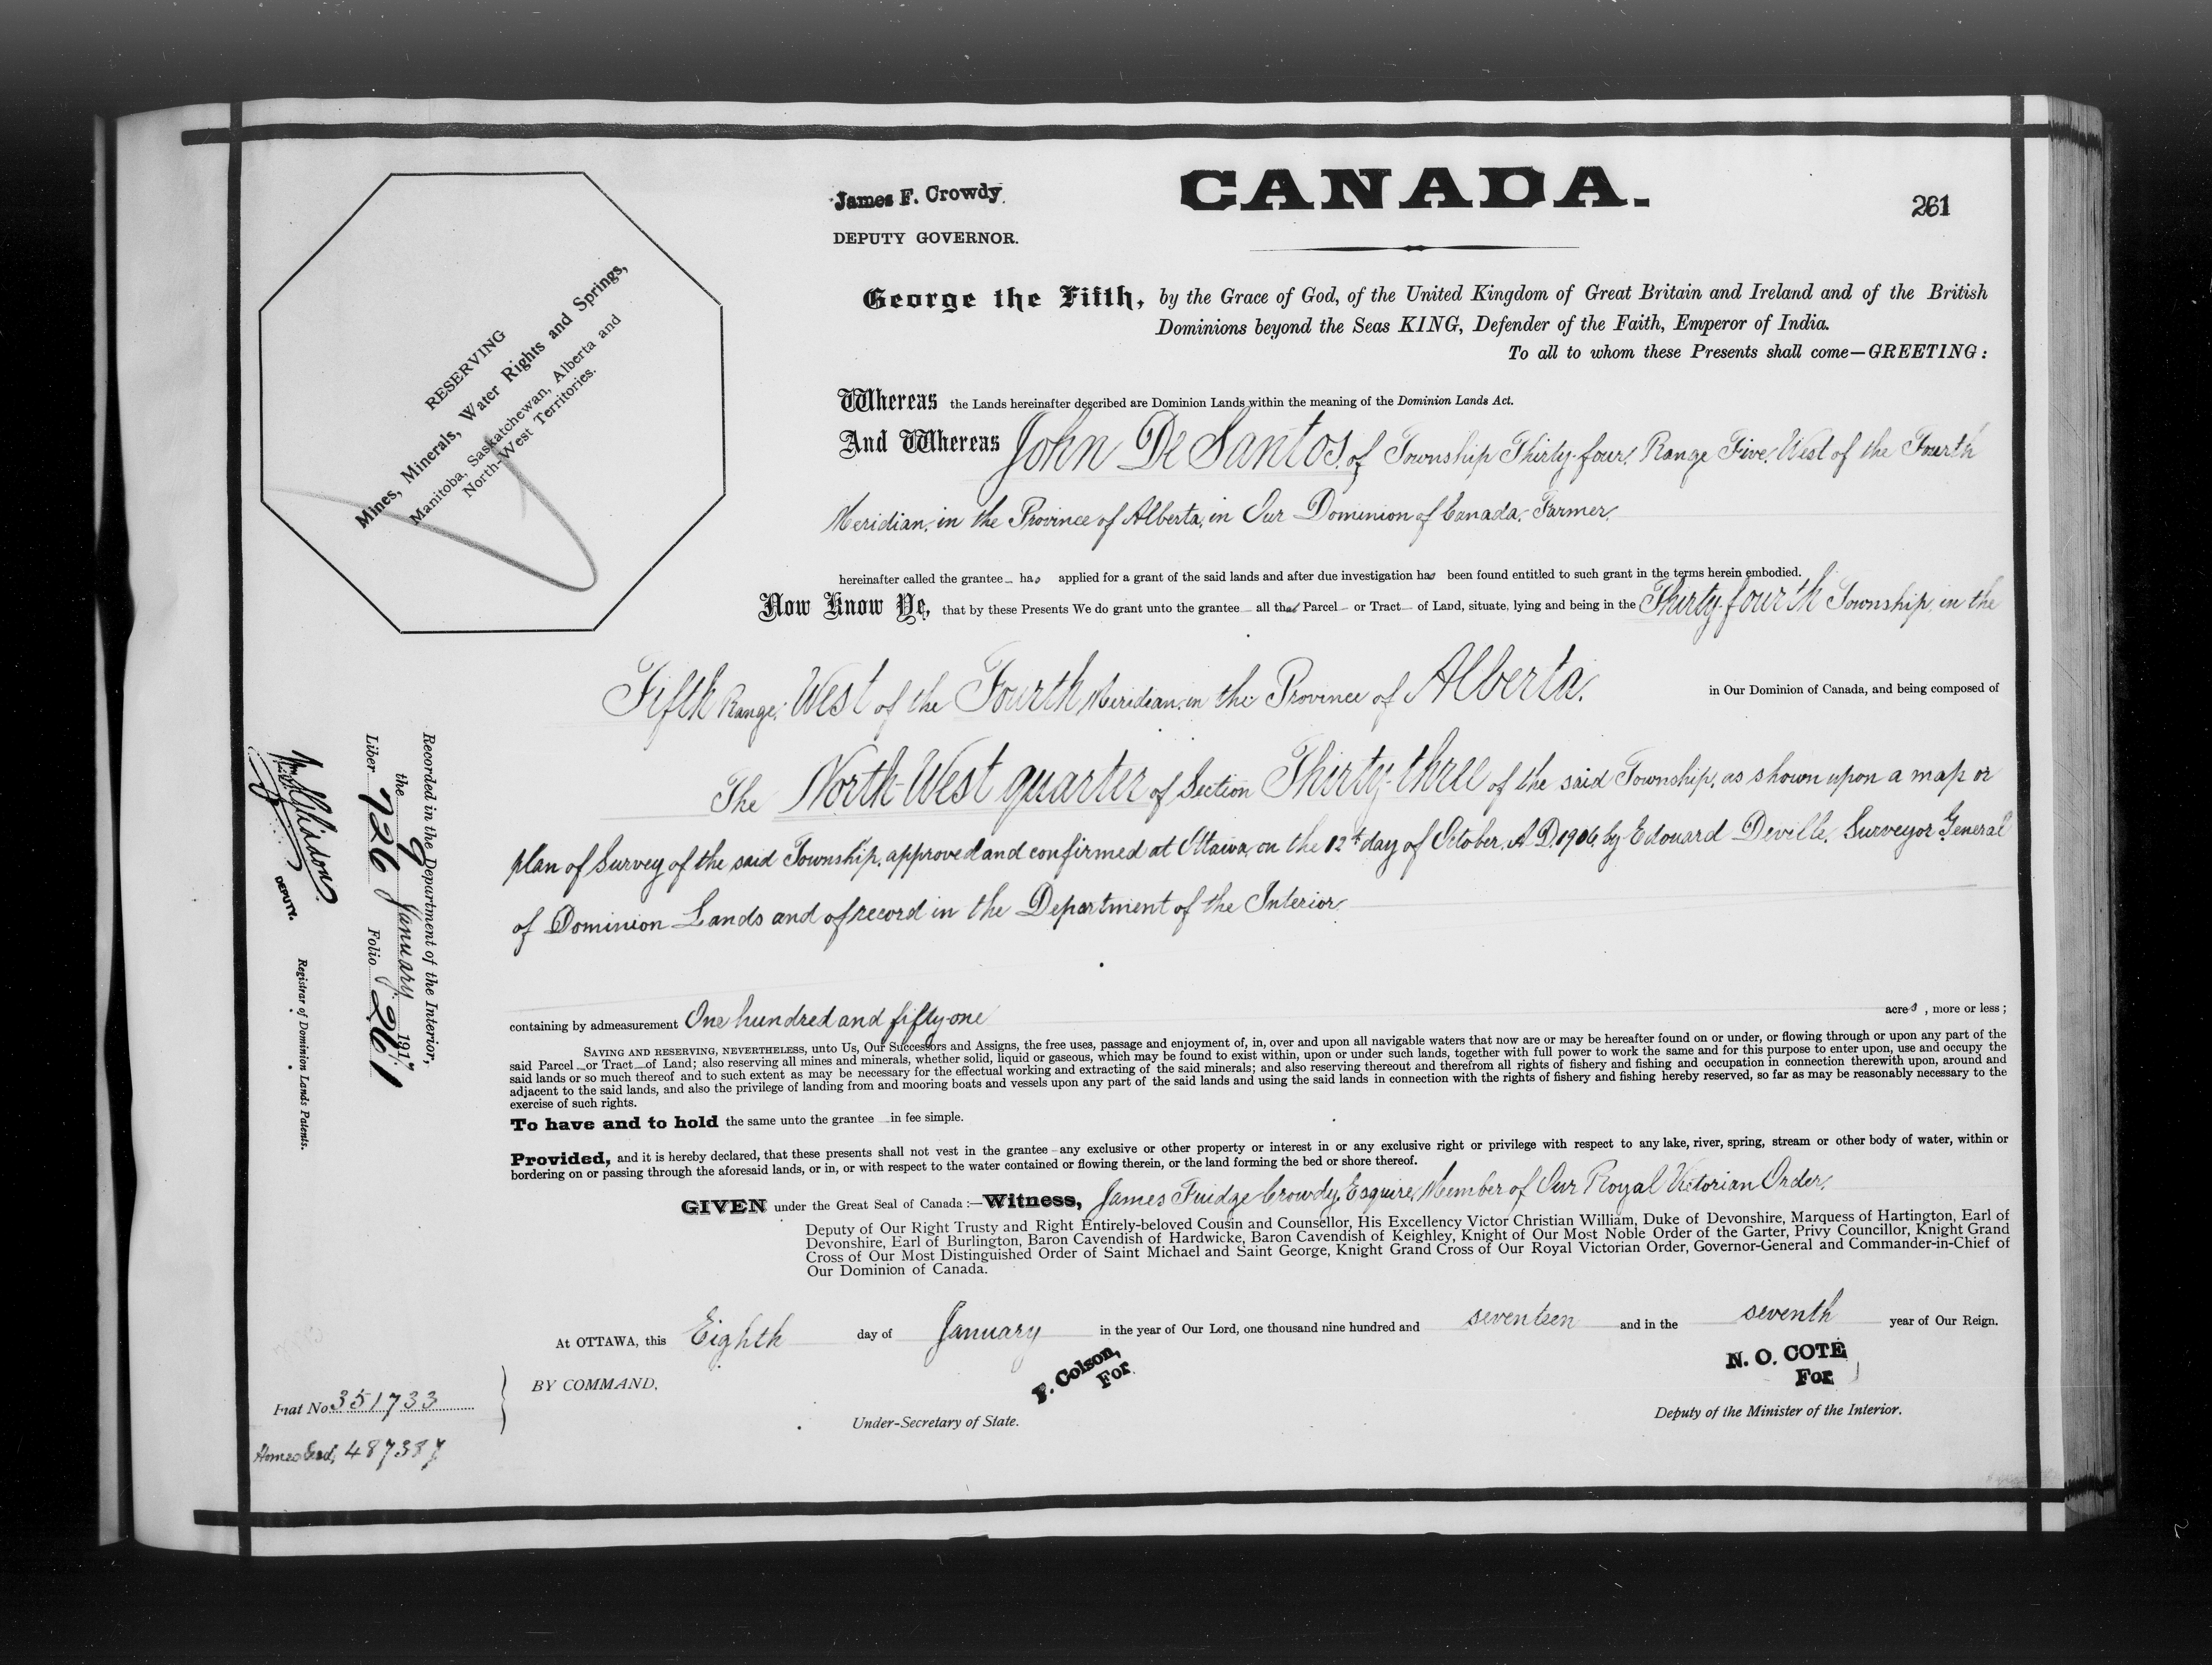 James F. Crowdy.
DEPUTY GOVERNOR.
CANADA.
261
RESERVING
Mines, Minerals, Water Rights and Springs,
Manitoba, Saskatchewan, Alberta and
North-West Territories.
George the Fifth, by the Grace of God, of the United Kingdom of Great Britain and Ireland and of the British
Dominions beyond the Seas KING, Defender of the Faith, Emperor of India.
To all to whom these Presents shall come—GREETING:
Whereas the Lands hereinafter described are Dominion Lands within the meaning of the Dominion Lands Act.
And Whereas John De Santos, of Township Thirty-four, Range Five, West of the Fourth
Meridian, in the Province of Alberta, in Our Dominion of Canada, Farmer,
hereinafter called the grantee has applied for a grant of the said lands and after due investigation has been found entitled to such grant in the terms herein embodied.
Now Know Ye, that by these Presents We do grant unto the grantee all that Parcel or Tract of Land, situate, lying and being in the Thirty-fourth Township, in the
Fifth Range, West of the Fourth Meridian, in the Province of Alberta, in Our Dominion of Canada, and being composed of
The North-West quarter of Section Thirty-three of the said Township, as shown upon a map or
plan of Survey of the said Township, approved and confirmed at Ottawa, on the 12th day of October, A.D. 1906, by Edouard Deville, Surveyor General
of Dominion Lands and of record in the Department of the Interior,
containing by admeasurement One hundred and fifty-one acres, more or less;
SAVING AND RESERVING, NEVERTHELESS, unto Us, Our Successors and Assigns, the free uses, passage and enjoyment of, in, over and upon all navigable waters that now are or may be hereafter found on or under, or flowing through or upon any part of the
said Parcel or Tract of Land; also reserving all mines and minerals, whether solid, liquid or gaseous, which may be found to exist within, upon or under such lands, together with full power to work the same and for this purpose to enter upon, use and occupy the
said lands or so much thereof and to such extent as may be necessary for the effectual working and extracting of the said minerals; and also reserving thereout and therefrom all rights of fishery and fishing and occupation in connection therewith upon, around and
adjacent to the said lands, and also the privilege of landing from and mooring boats and vessels upon any part of the said lands and using the said lands in connection with the rights of fishery and fishing hereby reserved, so far as may be reasonably necessary to the
exercise of such rights.
To have and to hold the same unto the grantee in fee simple.
Provided, and it is hereby declared, that these presents shall not vest in the grantee any exclusive or other property or interest in or any exclusive right or privilege with respect to any lake, river, spring, stream or other body of water, within or
bordering on or passing through the aforesaid lands, or in, or with respect to the water contained or flowing therein, or the land forming the bed or shore thereof.
GIVEN under the Great Seal of Canada:—Witness, James Fuidge Crowdy, Esquire, Member of Our Royal Victorian Order,
Deputy of Our Right Trusty and Right Entirely-beloved Cousin and Counsellor, His Excellency Victor Christian William, Duke of Devonshire, Marquess of Hartington, Earl of
Devonshire, Earl of Burlington, Baron Cavendish of Hardwicke, Baron Cavendish of Keighley, Knight of Our Most Noble Order of the Garter, Privy Councillor, Knight Grand
Cross of Our Most Distinguished Order of Saint Michael and Saint George, Knight Grand Cross of Our Royal Victorian Order, Governor-General and Commander-in-Chief of
Our Dominion of Canada.
At OTTAWA, this Eighth day of January in the year of Our Lord, one thousand nine hundred and seventeen and in the seventh year of Our Reign.
BY COMMAND,
F. Colson,
For
Under-Secretary of State.
N. O. COTÉ
For
Deputy of the Minister of the Interior.
Recorded in the Department of the Interior,
the 9 January 1917
Liber 726 Folio 261
DEPUTY.
Registrar of Dominion Lands Patents.
Fiat No. 351733
Homestead, 487387